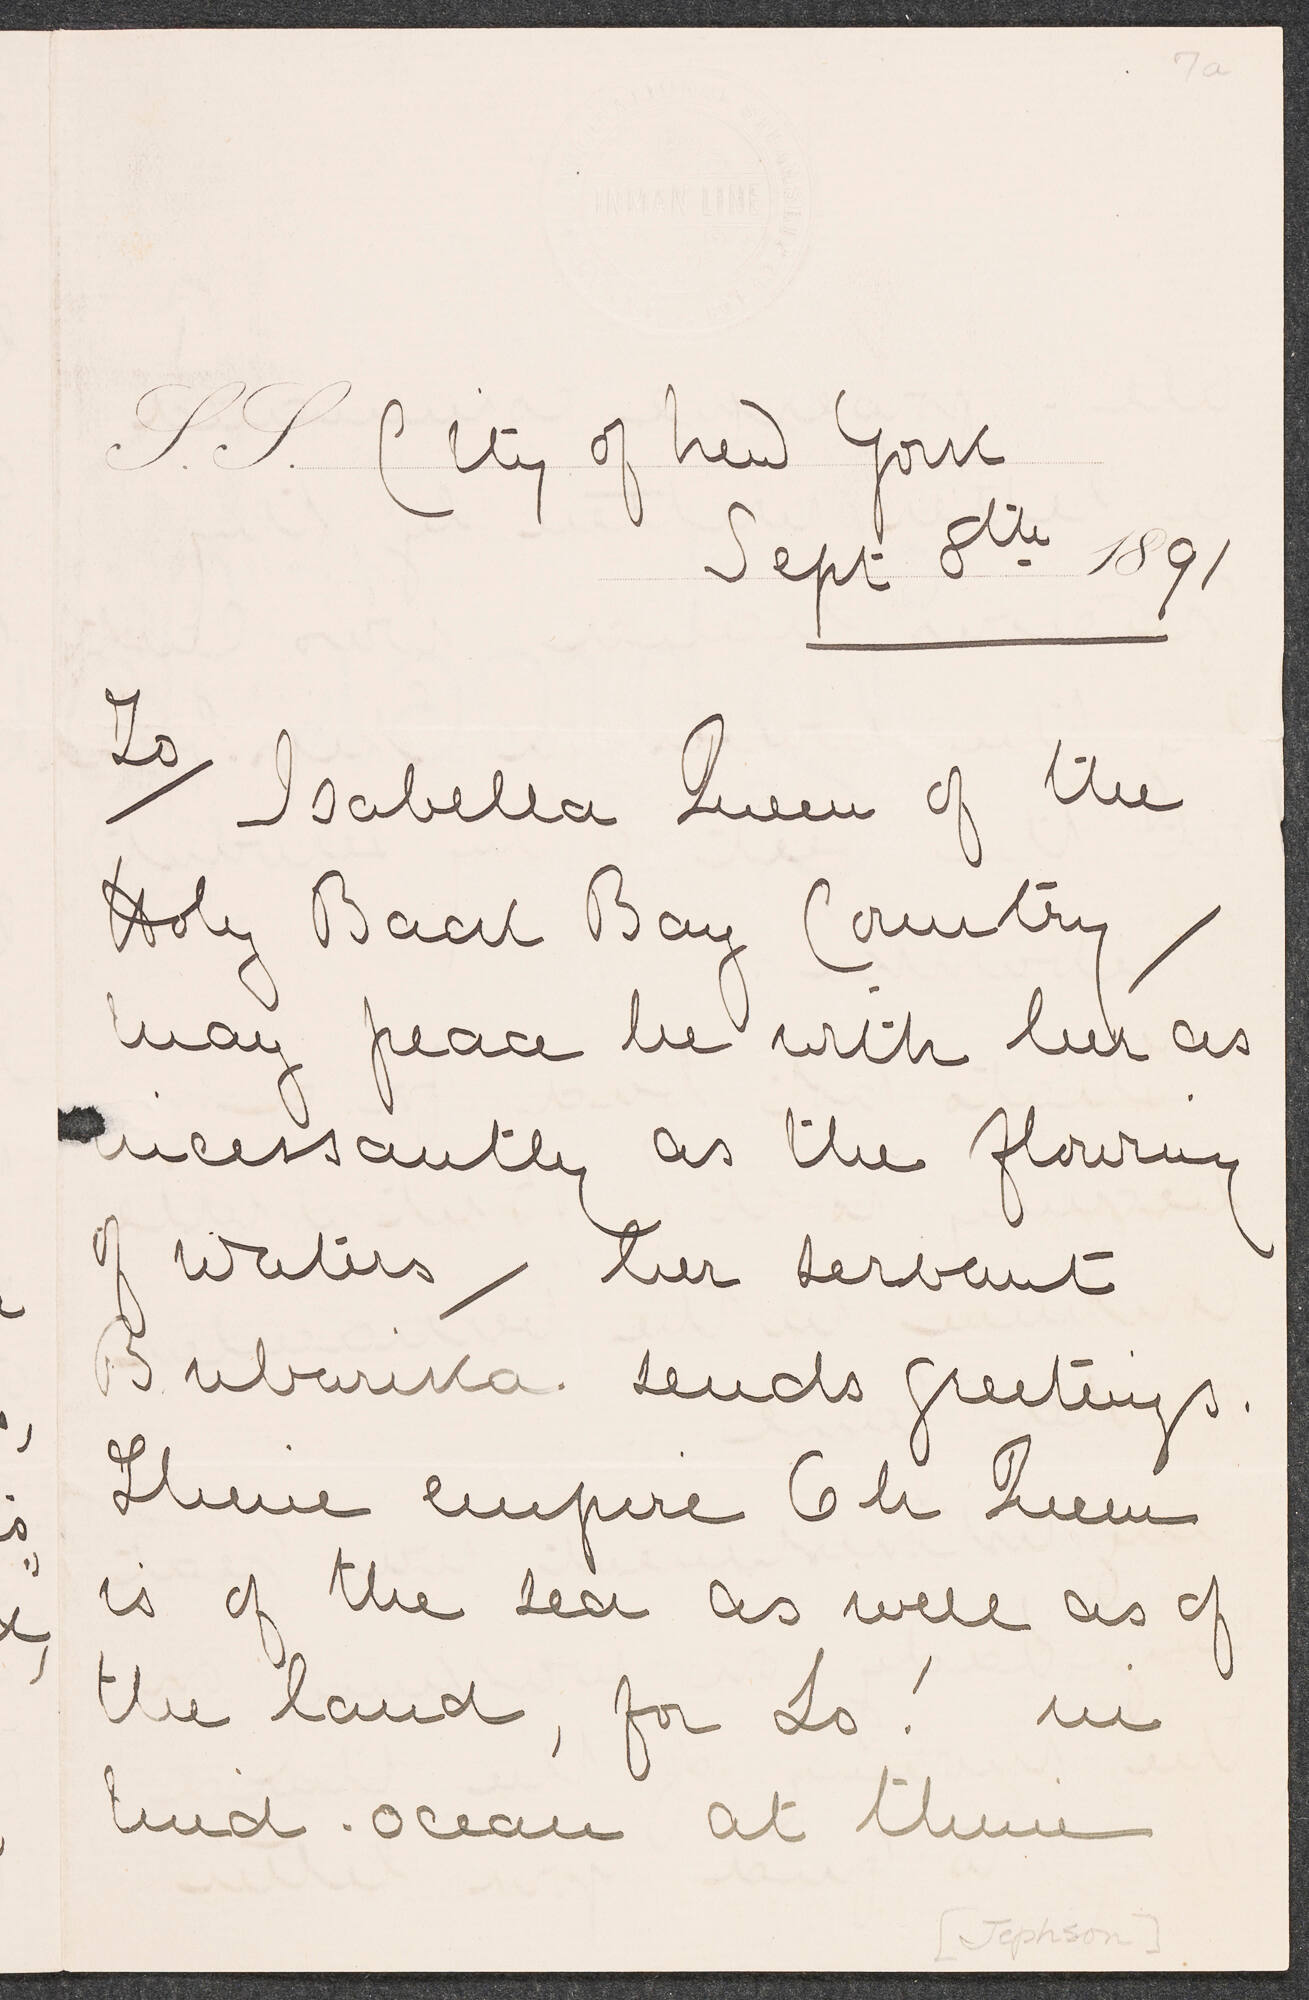 7a
INMAN LINE
S.S. City of New York
Sept 8th 1891
To/ Isabella Queen of the
Holy Back Bay Country/
may peace be with her as
incessantly as the flowing
of waters/ her servant
Bubarika sends greetings.
Thine empire Oh Queen
is of the sea as well as of
the land, for Lo! in
mid-ocean at thine
[Jephson]